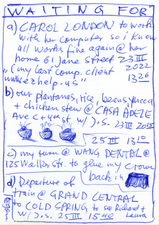 WAITING FOR
a) CAROL LONDON to work
with her computer so I know
all works fine again @ her
home 61 Jane Street 23 III
2022
(my last comp. client
makes help. 45" 1326
b) our plantains, rice, beans, yucca
+ chicken stew @ CASA ADELE
Ave C + 4th st. w/ J.s. 23 III 2022
25 III 13
c) my turn @ WANG DENTAL @
125 Walker Str. to glue my crown
back in
d) Departure of
train @ GRAND CENTRAL
to COLD SPRING to see Robert +
w/ J.s. 25 III 1545 Laura